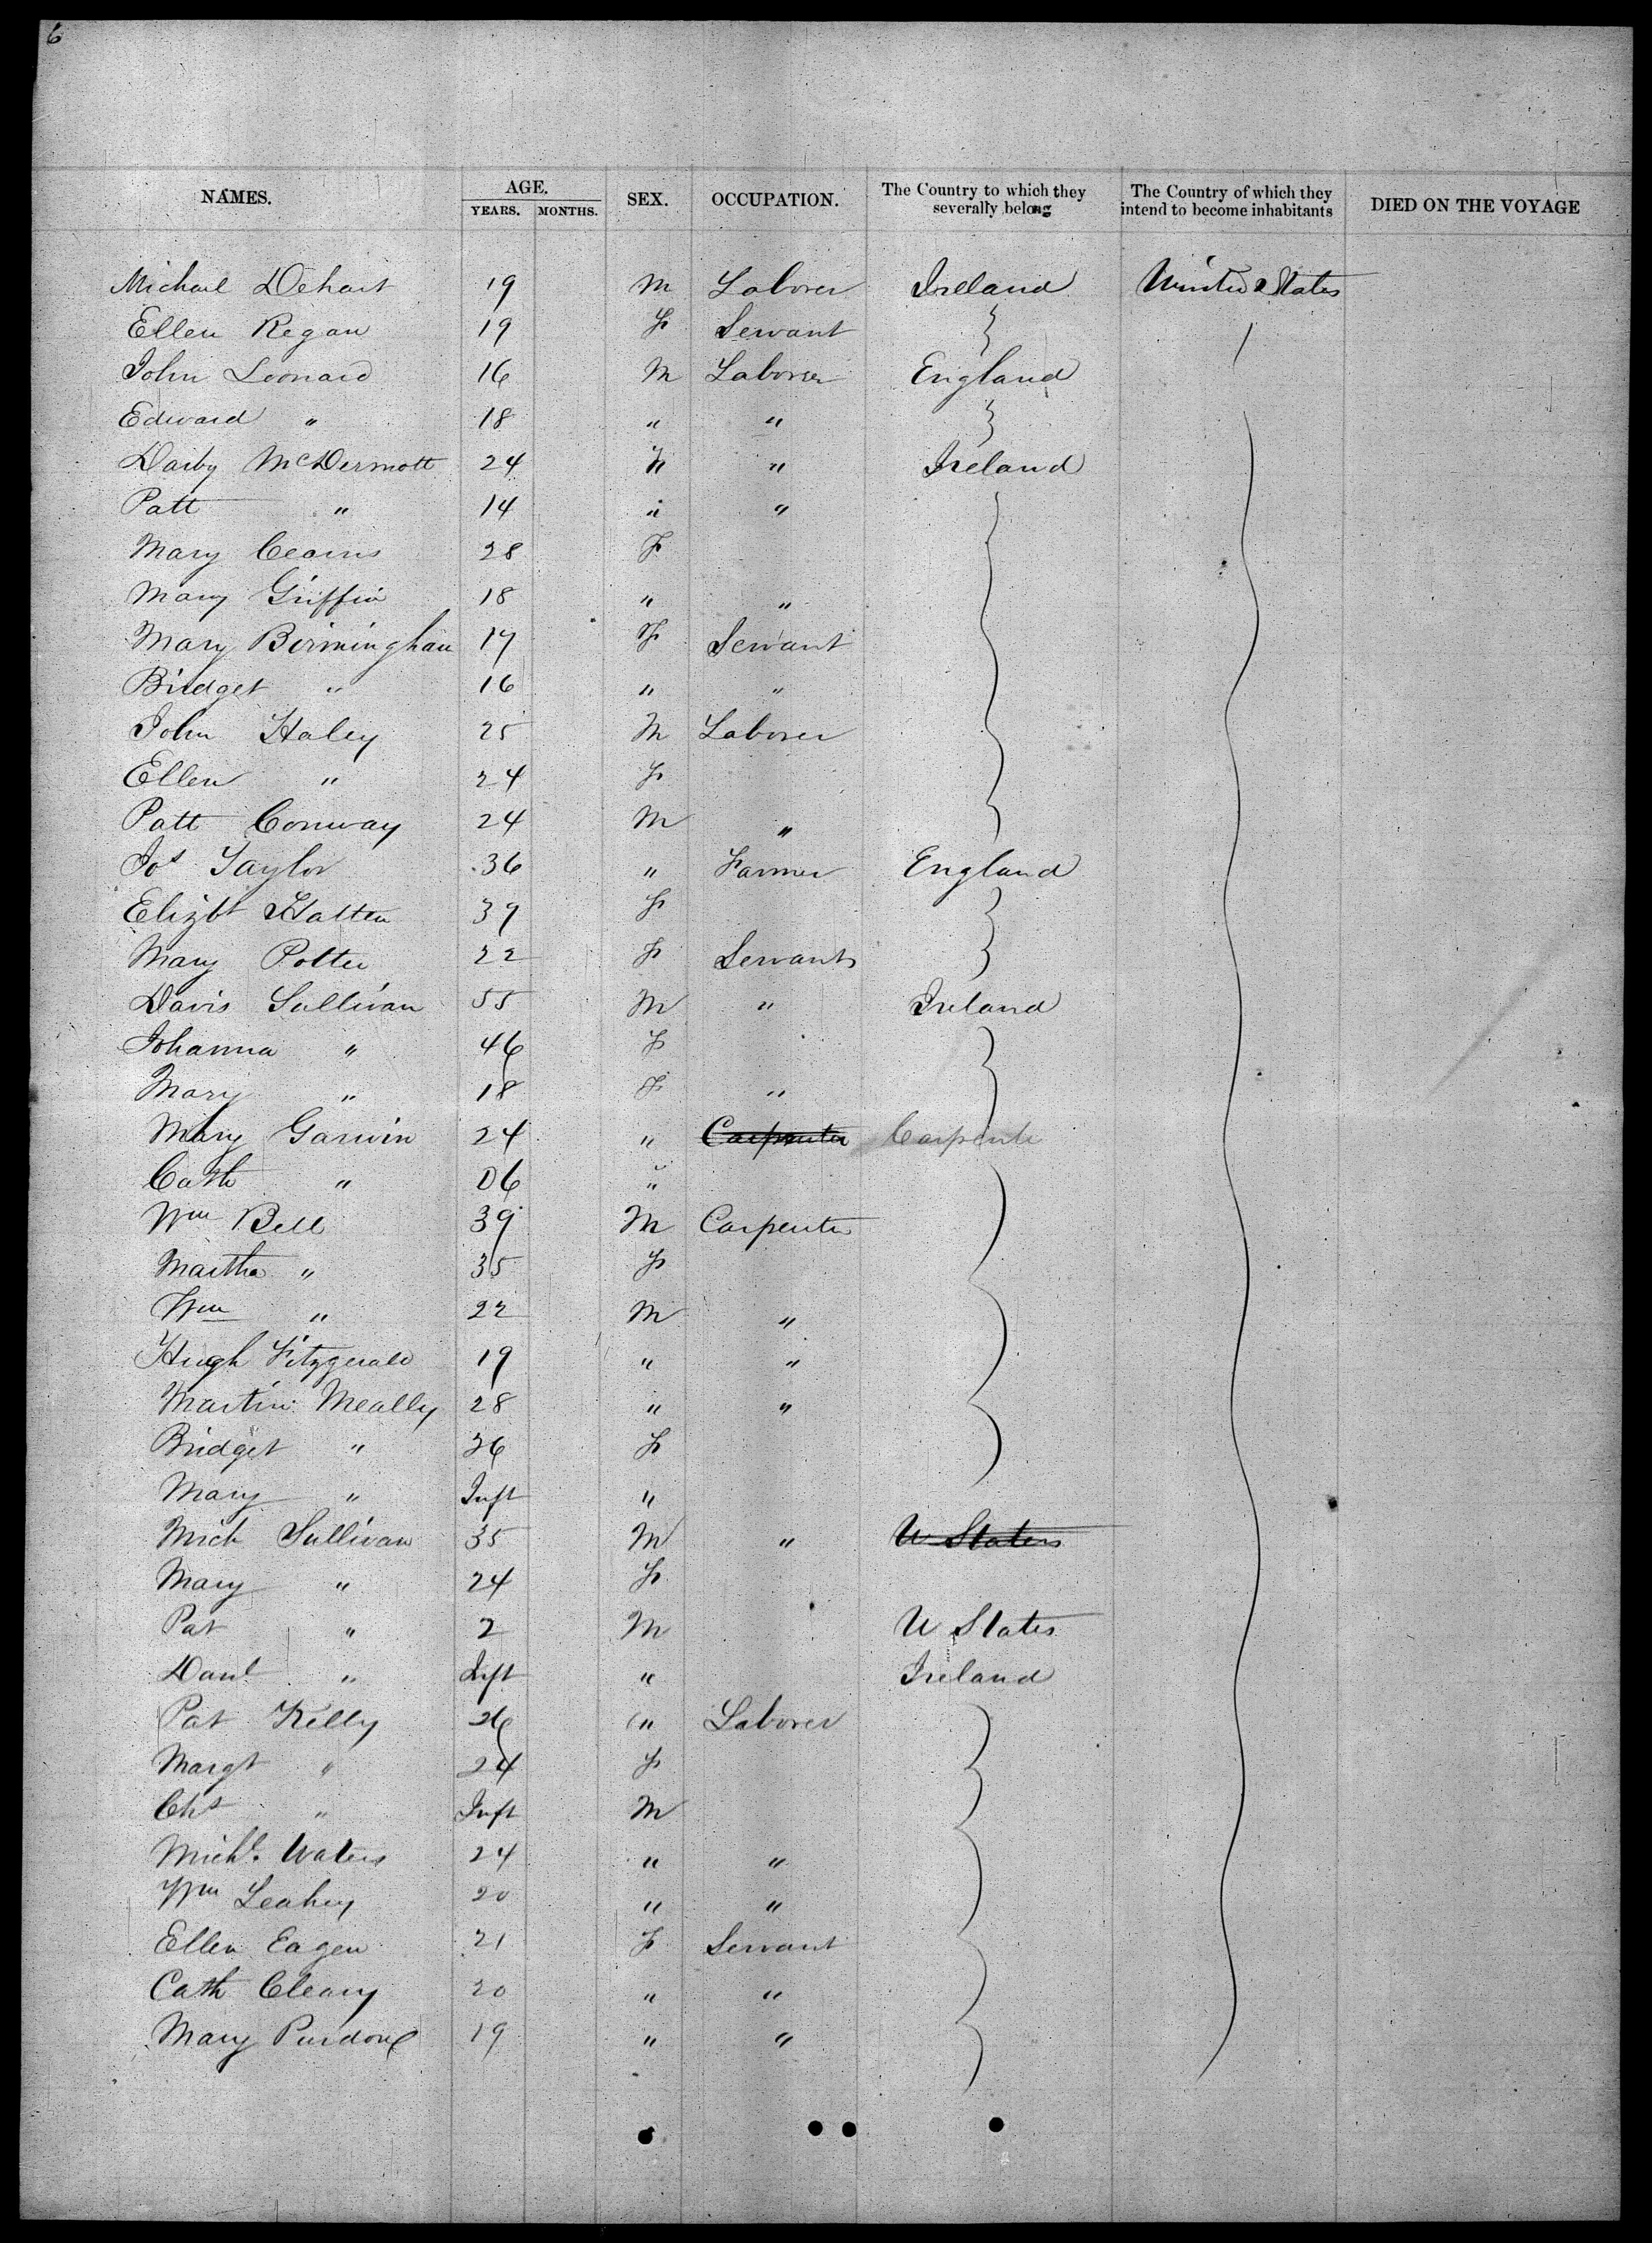 6
NAMES. AGE. YEARS. MONTHS. SEX. OCCUPATION. The Country to which they severally belong The Country of which they intend to become inhabitants DIED ON THE VOYAGE
Michael Dehart 19 M Laborer Ireland United States
Ellen Regan 19 F Servant
John Leonard 16 M Laborer England
Edward " 18 " "
Darby McDermott 24 " " Ireland
Patt " 14 " "
Mary Cearns 28 F
Mary Griffin 18 " "
Mary Birmingham 19 F Servant
Bridget " 16 " "
John Haley 25 M Laborer
Ellen " 24 F
Patt Conway 24 M "
Jos Taylor 36 " Farmer England
Elizbt Hatten 39 F
Mary Potter 22 F Servant
Davis Sullivan 55 M " Ireland
Johanna " 46 F
Mary " 18 F "
Mary Garwin 24 " Carpenter Carpente
Cath " 06 "
Wm Bell 39 M Carpenter
Martha " 35 F
Wm " 22 M "
Hugh Fitzgerald 19 " "
Martin Meally 28 " "
Bridget " 36 F
Mary " Inft "
Mich Sullivan 35 M " U States
Mary " 24 F
Pat " 2 M U States
Danl " Inft " Ireland
Pat Kelly 26 " Laborer
Margt " 24 F
Chs " Inft M
Michl. Waters 24 " "
Wm Leahey 20 " "
Ellen Eagen 21 F Servant
Cath Cleary 20 " "
Mary Purdon 19 " "